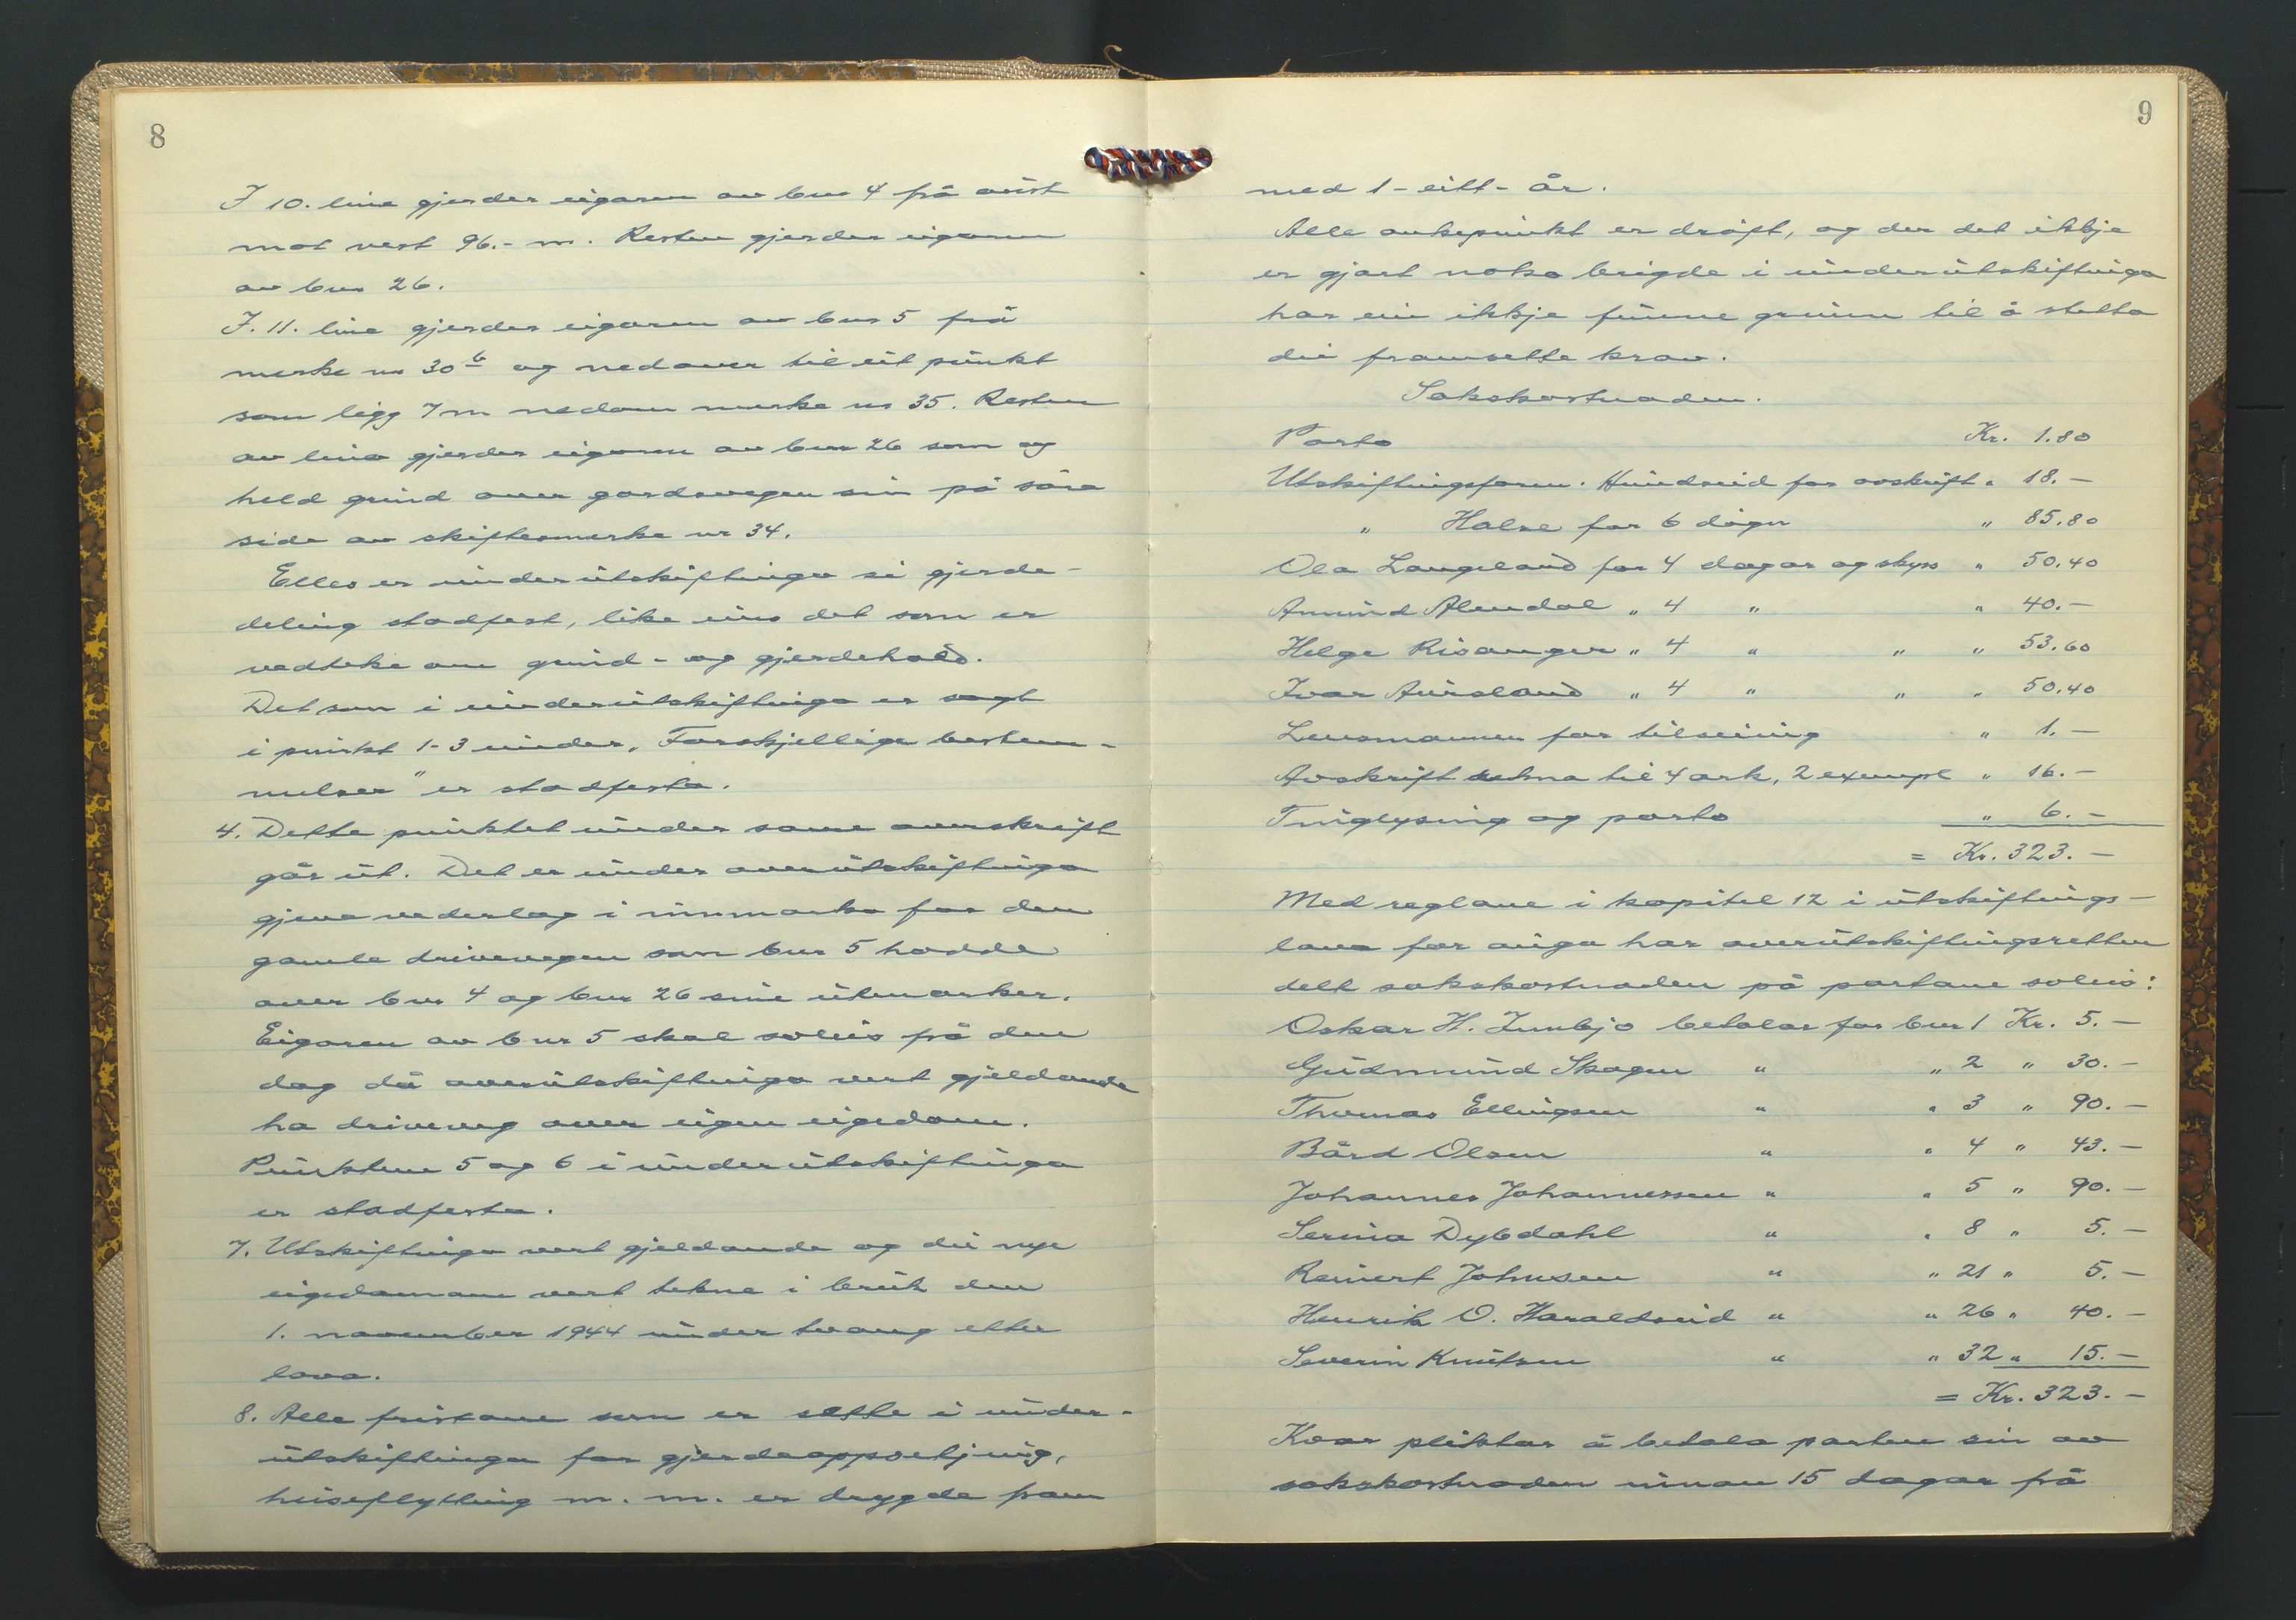 8
I 10. line gjerder eigaren av bnr 4 frå aust
mot vest 96.- m. Resten gjerder eigaren
av bnr 26.
I. 11. line gjerder eigaren av bnr 5 frå
merke nr 30b og nedover til eit punkt
som ligg 7 m nedom merke nr 35. Resten
av lina gjerder eigaren av bnr 26 som og
held grind over gardsvegen sin på søre
side av skiftesmerke nr 34.
Elles er underutskiftinga si gjerde-
deling stadfest, like eins det som er
vedteke om grind- og gjerdehald.
Det som i underutskiftinga er sagt
i punkt 1-3 under „Forskjellige bestem-
melser" er stadfesta.
4. Dette punktet under same overskrift
går ut. Det er under overutskiftinga
gjeve vederlag i innmarka for den
gamle drivevegen som bnr 5 hadde
over bnr 4 og bnr 26 sine utmarker.
Eigaren av bnr 5 skal soleis frå den
dag då overutskiftinga vert gjeldande
ha driveveg over eigen eigedom.
Punktene 5 og 6 i underutskiftinga
er stadfesta.
7. Utskiftinga vert gjeldande og dei nye
eigedomane vert tekne i bruk den
1. november 1944 under tvang etter
lova.
8. Alle fristane som er sette i under-
utskiftinga for gjerdeoppsetjing,
huseflytting m. m. er drygde fram
9
med 1 - eitt - år.
Alle ankepunkt er drøft, og der det ikkje
er gjort noko brigde i underutskiftinga
har ein ikkje funne grunn til å støtta
dei framsette krav.
Sakskostnaden.
Porto Kr. 1.80
Utskiftingsform. Hundseid for avskrift " 18.-
" Halse for 6 døger " 85.80
Ola Langeland for 4 dagar og skyss " 50.40
Amund Alendal " 4 " " 40.-
Helge Risanger " 4 " " " 53.60
Ivar Aursland " 4 " " " 50.40
Lensmannen for tilseiing " 1.-
Avskrift rekna til 4 ark, 2 exempl " 16.-
Tinglysing og porto " 6.-
= Kr. 323.-
Med reglane i kapitel 12 i utskiftings-
lova for auga har overutskiftingsretten
delt sakskostnaden på partane soleis:
Oskar H. Innbjo betalar for bnr 1 Kr. 5.-
Gudmund Skagen " " 2 " 30.-
Thomas Ellingsen " " 3 " 90.-
Bård Olsen " " 4 " 43.-
Johannes Johannessen " " 5 " 90.-
Serina Dybdahl " " 8 " 5.-
Reinert Johnsen " " 21 " 5.-
Henrik O. Haraldseid " " 26 " 40.-
Severin Knutsen " " 32 " 15.-
= Kr. 323.-
Kvar pliktar å betala parten sin av
sakskostnaden innan 15 dagar frå